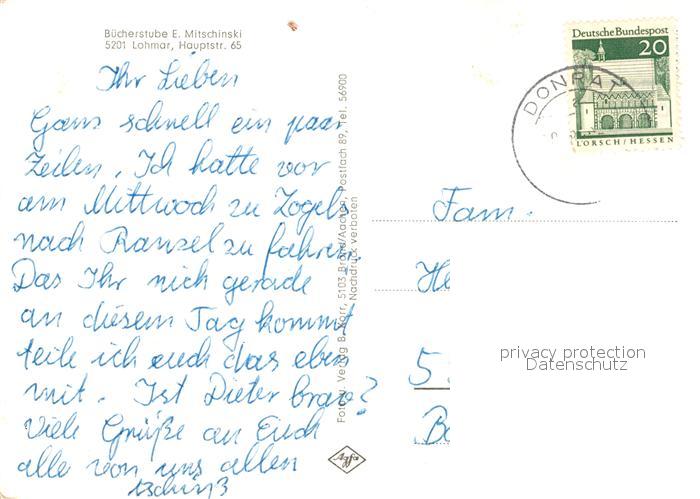 Bücherstube E. Mitschinski
5201 Lohmar, Hauptstr. 65
Ihr Lieben
Ganz schnell ein paar
Zeilen. Ich hatte vor
am Mittwoch zu Zogels
nach Ranzel zu fahren.
Das Ihr nich gerade
an diesem Tag kommt
teile ich euch das eben
mit. Ist Dieter brav?
Viele Grüße an Euch
alle von uns allen
Foto u. Verlag B. Korr, 5103 Brand/Aachen, Postfach 89, Tel. 56900
Nachdruck verboten
Agfa
Deutsche Bundespost
20
LORSCH/HESSEN
DONRAT
Fam.
He
5
B
privacy protection
Datenschutz